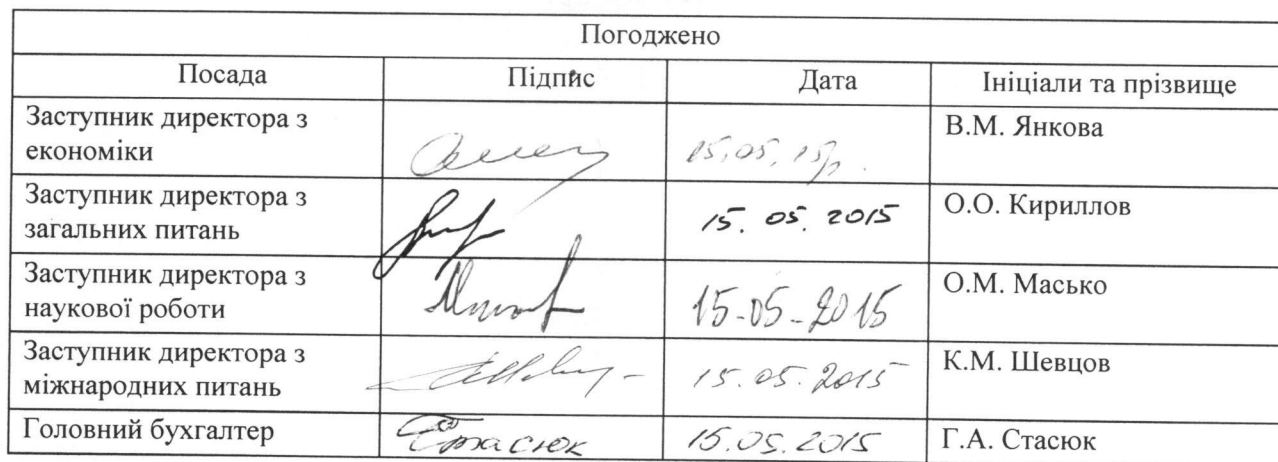 Погоджено
Посада Підпис Дата Ініціали та прізвище
Заступник директора з
економіки 15.05.15р. В.М. Янкова
Заступник директора з
загальних питань 15.05.2015 О.О. Кириллов
Заступник директора з
наукової роботи 15-05-2015 О.М. Масько
Заступник директора з
міжнародних питань 15.05.2015 К.М. Шевцов
Головний бухгалтер Стасюк 15.05.2015 Г.А. Стасюк